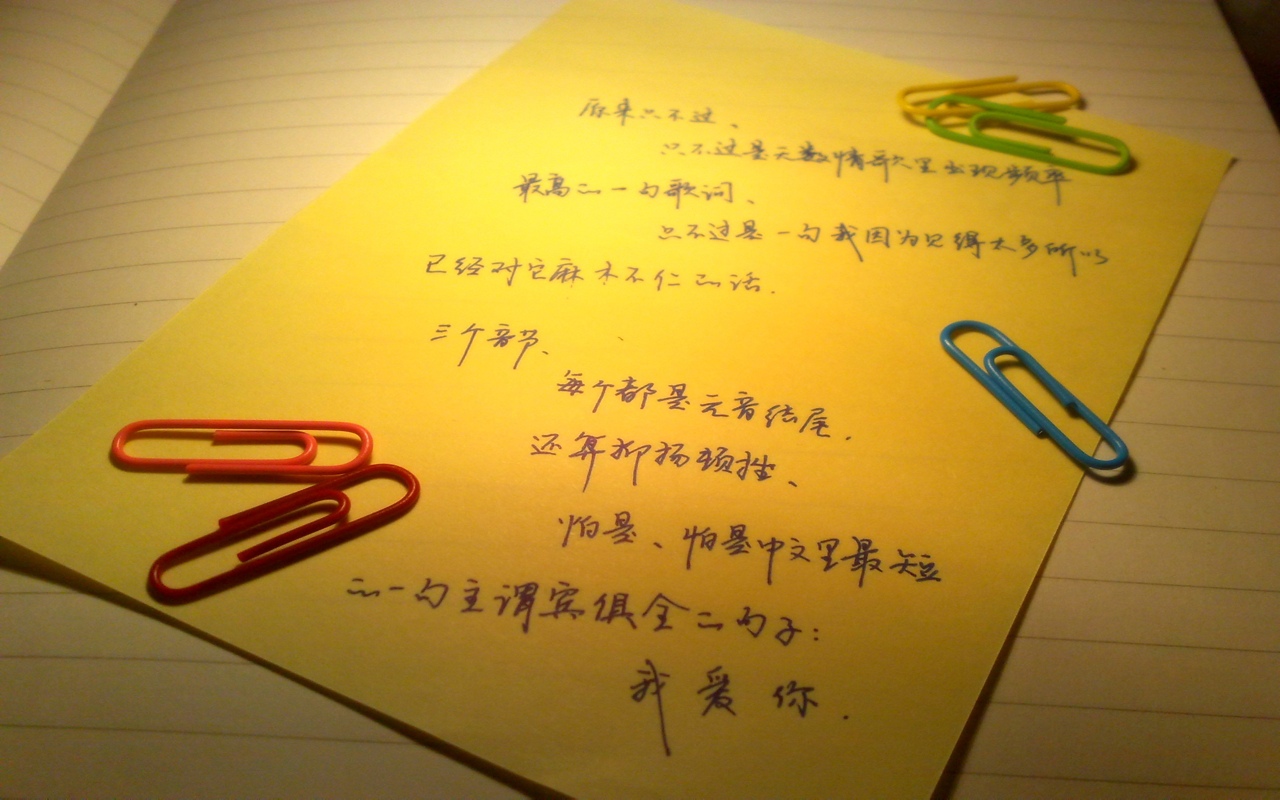 原来只不过、
只不过是无数情歌里出现频率
最高的一句歌词、
只不过是一句我因为见得太多所以
已经对它麻木不仁的话.
三个音节、
每个都是元音结尾.
还算抑扬顿挫、
怕是、怕是中文里最短
的一句主谓宾俱全的句子:
我爱你.